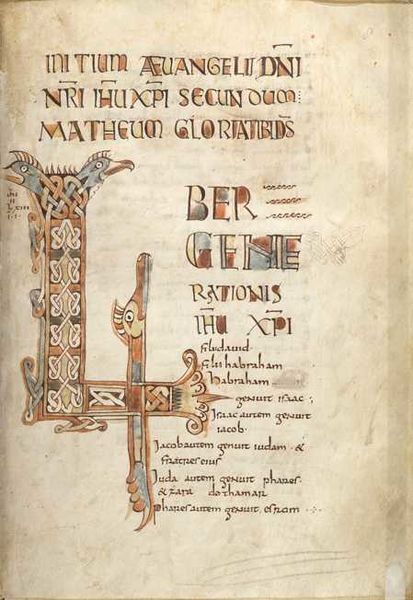 INITIUM ÆUANGELII DN̄I
NR̄I IH̄U XP̄I SECUNDUM:
MATHEUM GLORIATIBIDS̄
LI
BER
GENE
RATIONIS
IH̄U XP̄I
filii dauid
filii habraham
habraham
genuit isaac;
Isaac autem genuit
iacob
Jacob autem genuit iudam &
fratres eius
Juda autem genuit phares
& zara de thamar
phares autem genuit esrom